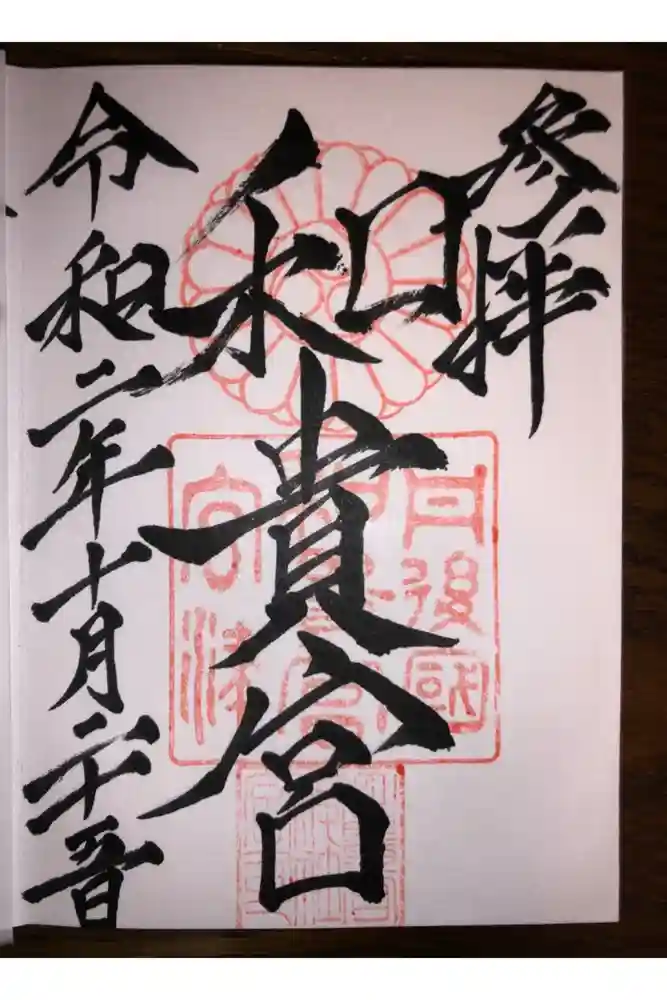 参拝
和貴宮
令和二年十月二十五日
丹後國
宮津